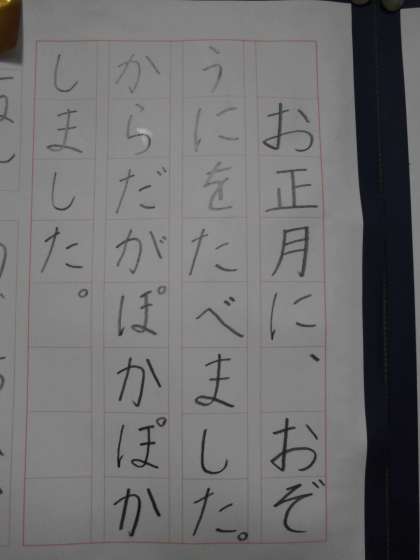 お正月に、おぞ
うにをたべました。
からだがぽかぽか
しました。